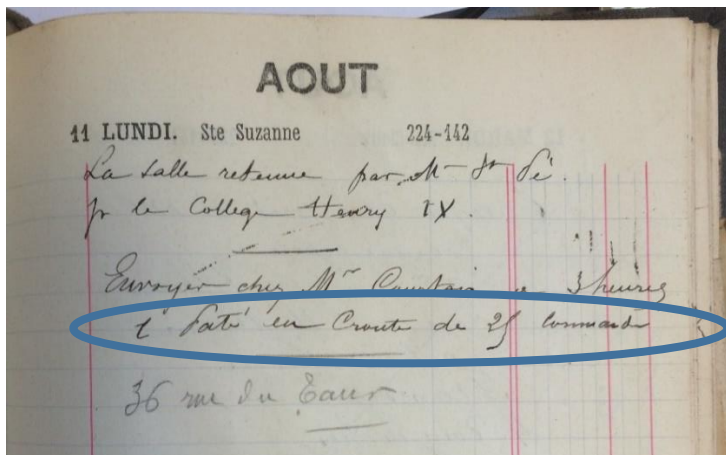 AOUT
11 LUNDI. Ste Suzanne 224-142
La salle retenue par M
pr le College Henry IV.
Envoyer chez Mr Courtois a 3 heures
1 Paté en Croute de 25 Commandé
36 rue du Taur